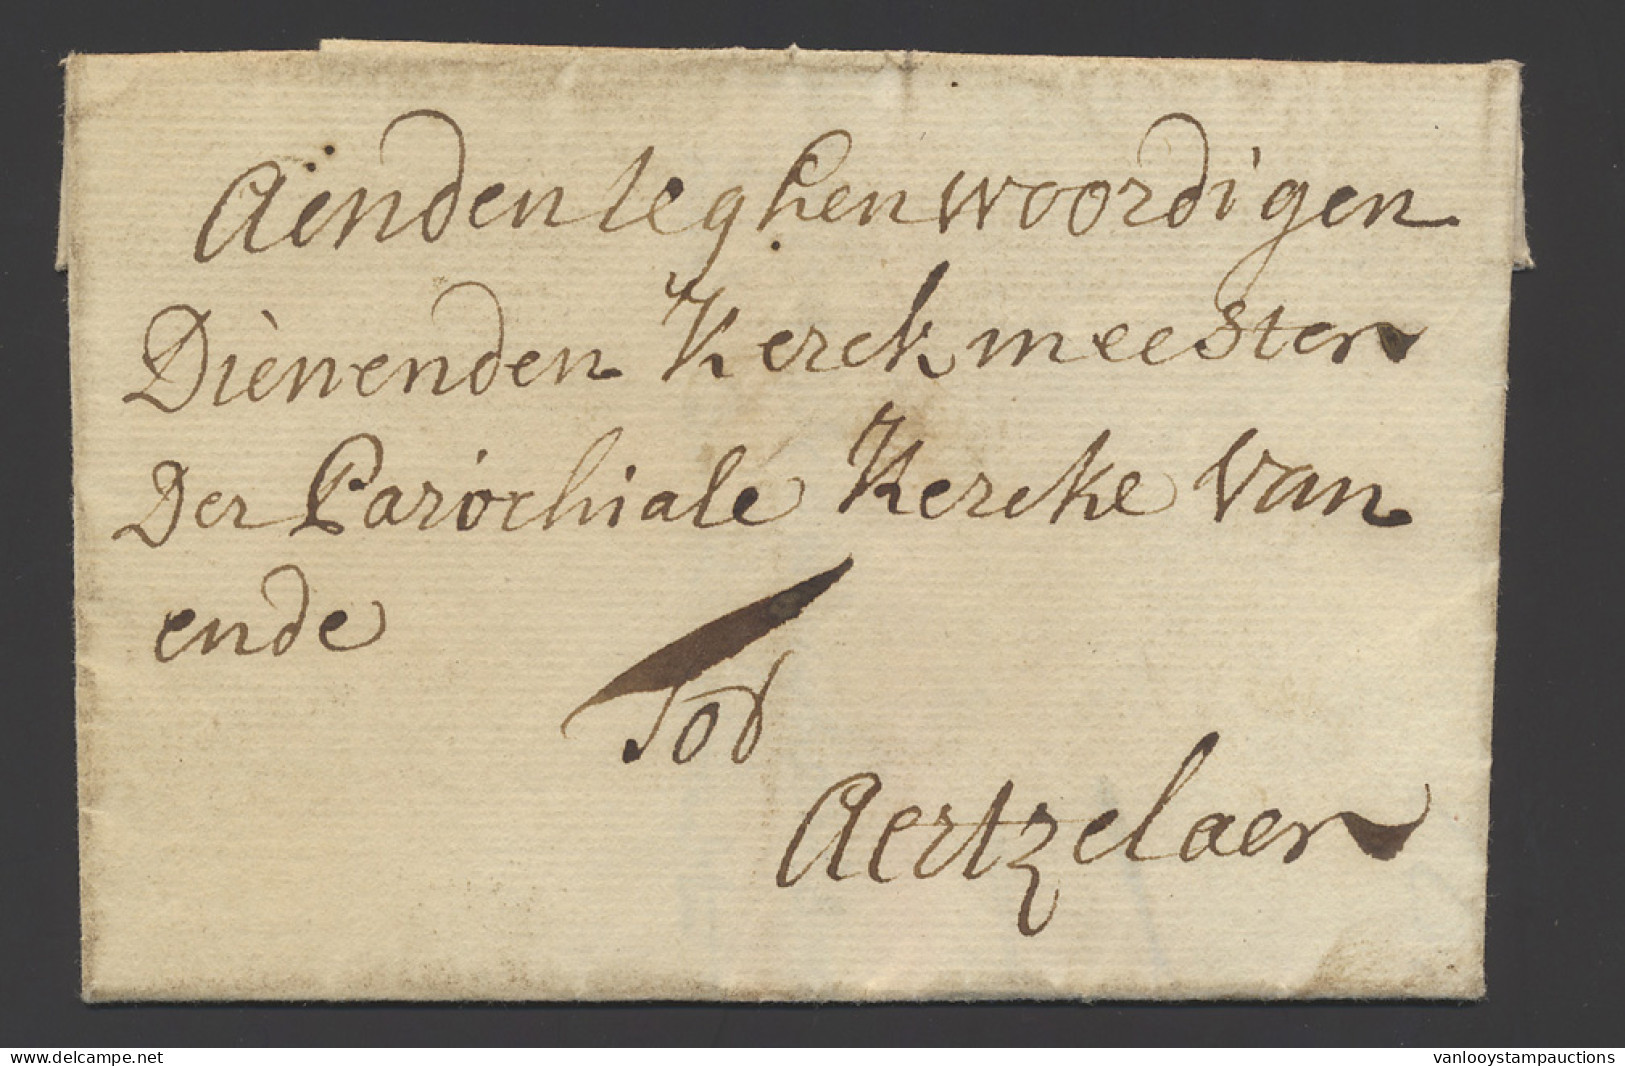 Aenden teghenwoordigen
Dienenden Kerckmeester
Der Parochiale Kercke Van
ende
Tot
Aertzelaer
www.delcampe.net
vanlooystampauctions